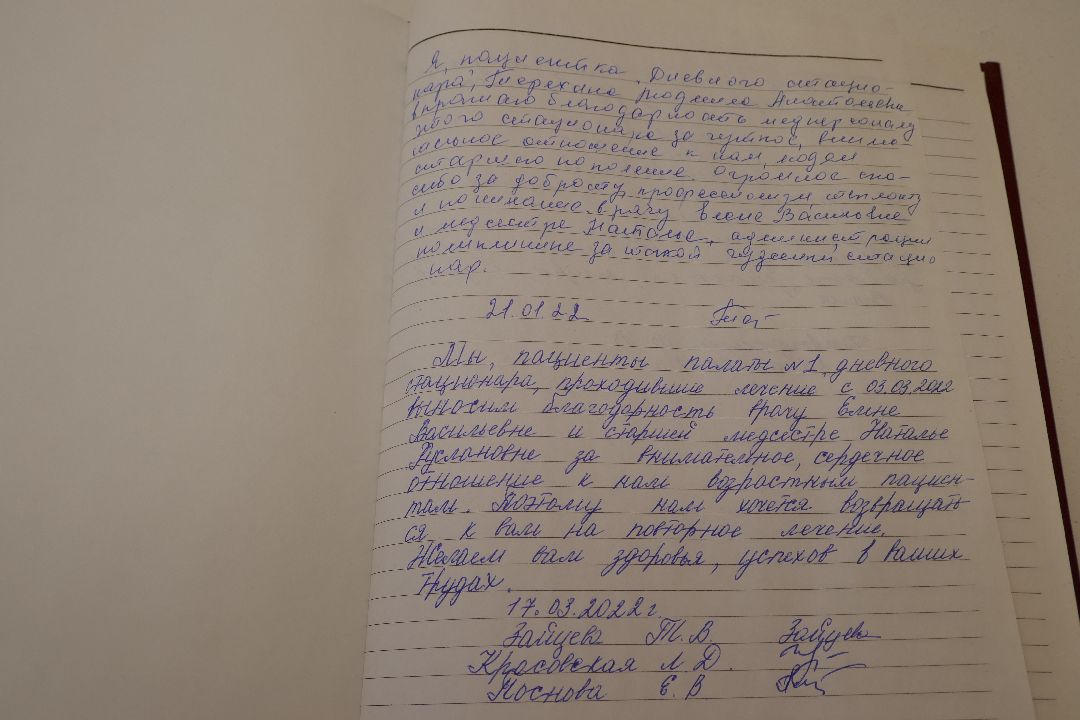 Я, пациентка Дневного стацио-
нара, Терехина Людмила Анатольевна
выражаю благодарность медперсоналу
этого стационара за чуткое, внима-
тельное отношение к нам, людям
старшего поколения. Огромное спа-
сибо за доброту, профессионализм, теплоту
и понимание врачу Елене Васильевне
и медсестре Наталье, администрации
поликлинике за такой чудесный стацио
нар.
21.01.22
Мы, пациенты палаты №1 дневного
стационара, проходившие лечение с 03.03.2022
выносим благодарность врачу Елене
Васильевне и старшей медсестре Наталье
Руслановне за внимательное, сердечное
отношение к нам возрастным пациен-
там. Поэтому нам хочется возвращать
ся к вам на повторное лечение.
Желаем вам здоровья, успехов в ваших
трудах.
17.03.2022 г.
Зайцева Т.В. Зайцева
Красовская Л.Д.
Носнова Е.В